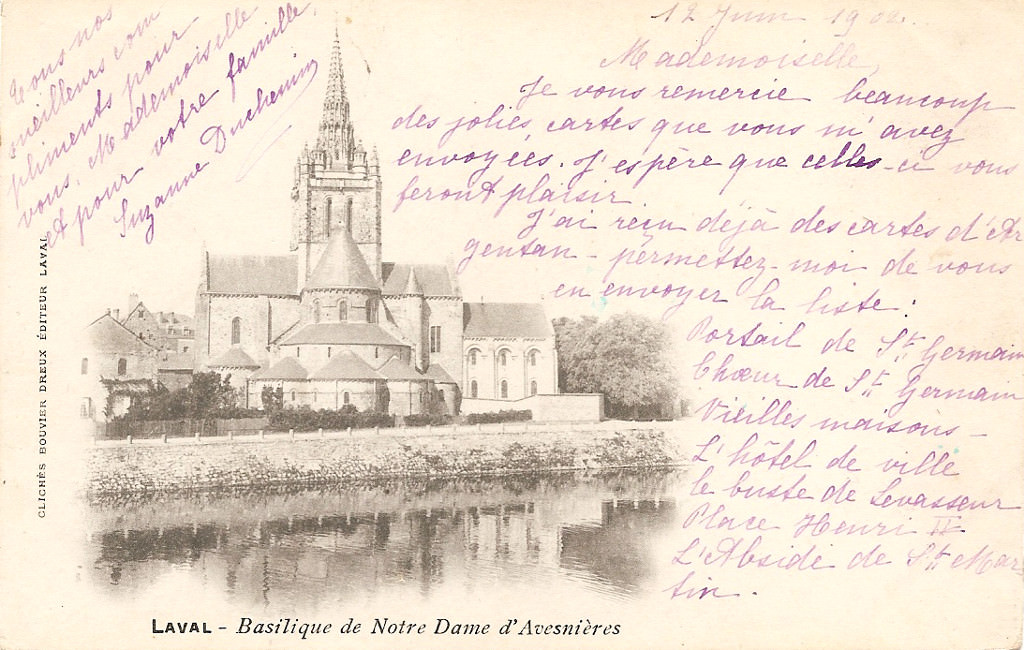 12 Juin 1902.
Mademoiselle,
Je vous remercie beaucoup
des jolies cartes que vous m'avez
envoyées. J'espère que celles-ci vous
feront plaisir
J'ai reçu déjà des cartes d'Ar
gentan - permettez-moi de vous
en envoyer la liste :
Portail de St Germain
Chœur de St Germain
Vieilles maisons -
L'hôtel de ville
le buste de Levasseur
Place Henri II
L'Abside de St Mar
tin.
Tous nos
meilleurs com
pliments pour
vous, Mademoiselle
et pour votre famille,
Suzanne Duchemin
CLICHÉS BOUVIER DREUX ÉDITEUR LAVAL
LAVAL - Basilique de Notre Dame d'Avesnières